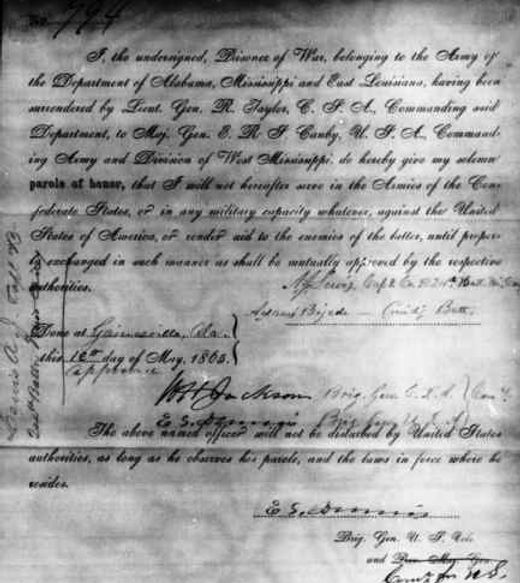 No. 794
I, the undersigned, Prisoner of War, belonging to the Army of
the Department of Alabama, Mississippi and East Louisiana, having been
surrendered by Lieut. Gen. R. Taylor, C. S. A., Commanding said
Department, to Maj. Gen. E. R. S. Canby, U. S. A., Command-
ing Army and Division of West Mississippi, do hereby give my solemn
parole of honor, that I will not hereafter serve in the Armies of the Con-
federate States, or in any military capacity whatever, against the United
States of America, or render aid to the enemies of the latter, until proper-
ly exchanged in such manner as shall be mutually approved by the respective
authorities.
A J Lewis, Capt Co. 
Adams Brigade — Comdg Batt.
Done at Gainesville, Ala.
this 12th day of May, 1865.
approved
W H Jackson Brig. Gen. C. S. A.
E. S. Dennis Brig Gen U. S.
The above named officer will not be disturbed by United States
authorities, as long as he observes his parole, and the laws in force where he
resides.
E S. Dennis
Brig. Gen. U. S. Vols.
and Pro. Mar. Gen.
Comr for U. S.
Lewis A. J. Capt